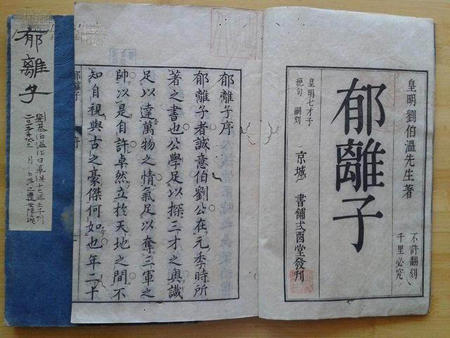 皇明劉伯溫先生著
郁離子
不許翻刻
千里必究
皇明七才子
絶句 嗣刻
京城 書鋪弍酉堂發刊
郁離子序
郁離子者誠意伯劉公在元季時所
著之書也公學足以探三才之奧識
足以達萬物之情氣足以奪三軍之
帥以是自許卓然立於天地之間不
知自視與古之豪傑何如也年二十
郁離子
序
郁離子